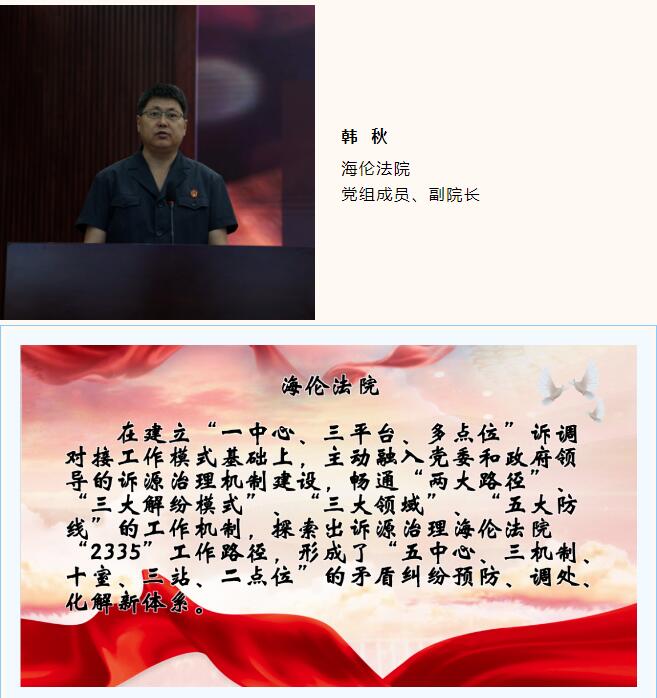 韩 秋
海伦法院
党组成员、副院长
海伦法院
在建立“一中心、三平台、多点位”诉调
对接工作模式基础上，主动融入党委和政府领
导的诉源治理机制建设，畅通“两大路径”、
“三大解纷模式”、“三大领域”、“五大防
线”的工作机制，探索出诉源治理海伦法院
“2335”工作路径，形成了“五中心、三机制、
十室、三站、二点位”的矛盾纠纷预防、调处、
化解新体系。